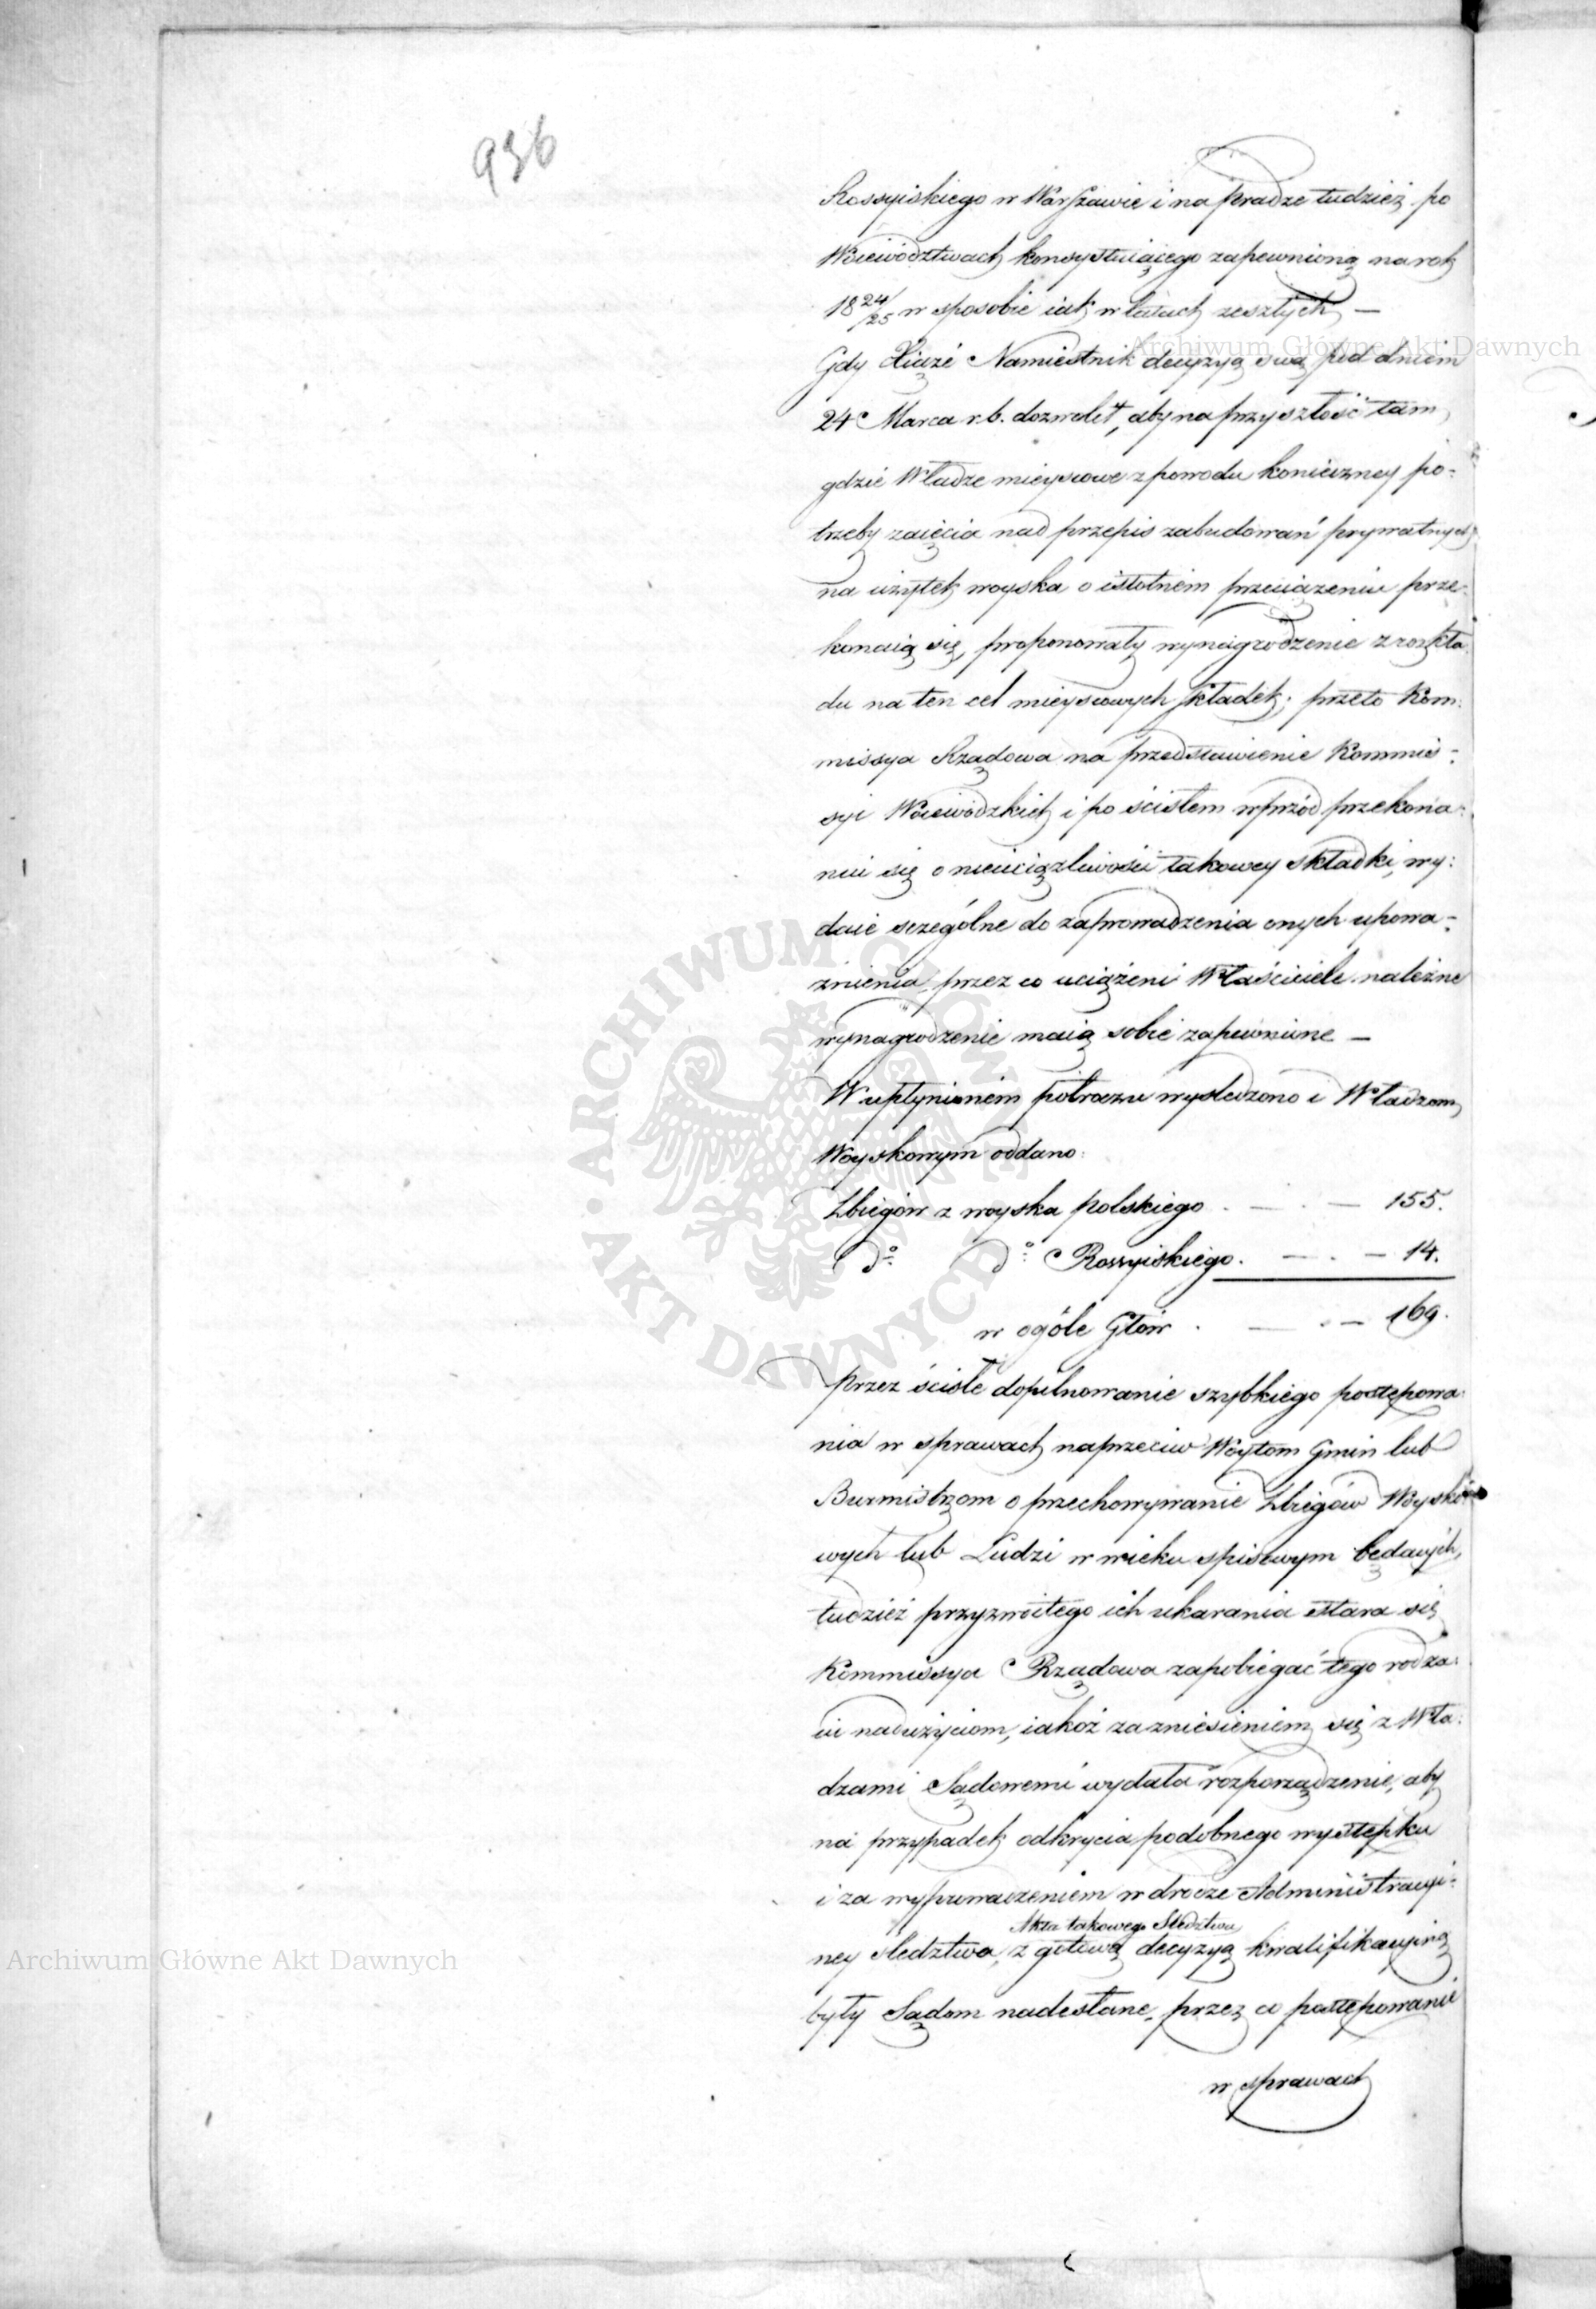 936
Rossyiskiego w Warszawie i na Pradze tudzież po
Woiewództwach konsystuiącego zapewnioną na rok
18 24/25 w sposobie iak w latach zeszłych —
Gdy Xiąże Namiestnik decyzyą swą pod dniem
24 Marca r.b. dozwolił, aby na przyszłość tam,
gdzie Władze mieyscowe z powodu konieczney po-
trzeby zaięcia nad przepis zabudowań prywatnych
na użytek woyska o istotnem przeciążeniu prze-
konaią się, proponowały wynagrodzenie z rozkła-
du na ten cel mieyscowych składek; przeto Kom-
missya Rządowa na przedstawienie Kommis-
syi Woiewódzkich i po ścisłem wprzód przekona-
niu się o nieuciążliwości takowey składki, wy-
daie szczególne do zaprowadzenia onych upowa-
żnienia, przez co uciążeni Właściciele należne
wynagrodzenie maią sobie zapewnione —
W upłynionem półroczu wyśledzono i Władzom
Woyskowym oddano:
Zbiegów z woyska Polskiego . — . — 155.
do do Rossyiskiego . — . — 14.
w ogóle Głów . — . — 169.
Przez ścisłe dopilnowanie szybkiego postępowa-
nia w sprawach naprzeciw Wóytom Gmin lub
Burmistrzom o przechowywanie Zbiegów Woysko-
wych lub Ludzi w wieku spisowym będących,
tudzież przyzwoitego ich ukarania stara się
Kommissya Rządowa zapobiegać tego rodza-
iu nadużyciom, iakoż za zniesieniem się z Wła-
dzami Sądowemi wydała rozporządzenie, aby
na przypadek odkrycia podobnego występku
i za wyprowadzeniem w drodze Administracyi-
Akta takowego Śledztwa
ney śledztwa, z gotową decyzyą kwalifikacyiną
były Sądom nadesłane, przez co postępowanie
w sprawach
Archiwum Główne Akt Dawnych
Archiwum Główne Akt Dawnych
ARCHIWUM GŁÓWNE • AKT DAWNYCH •